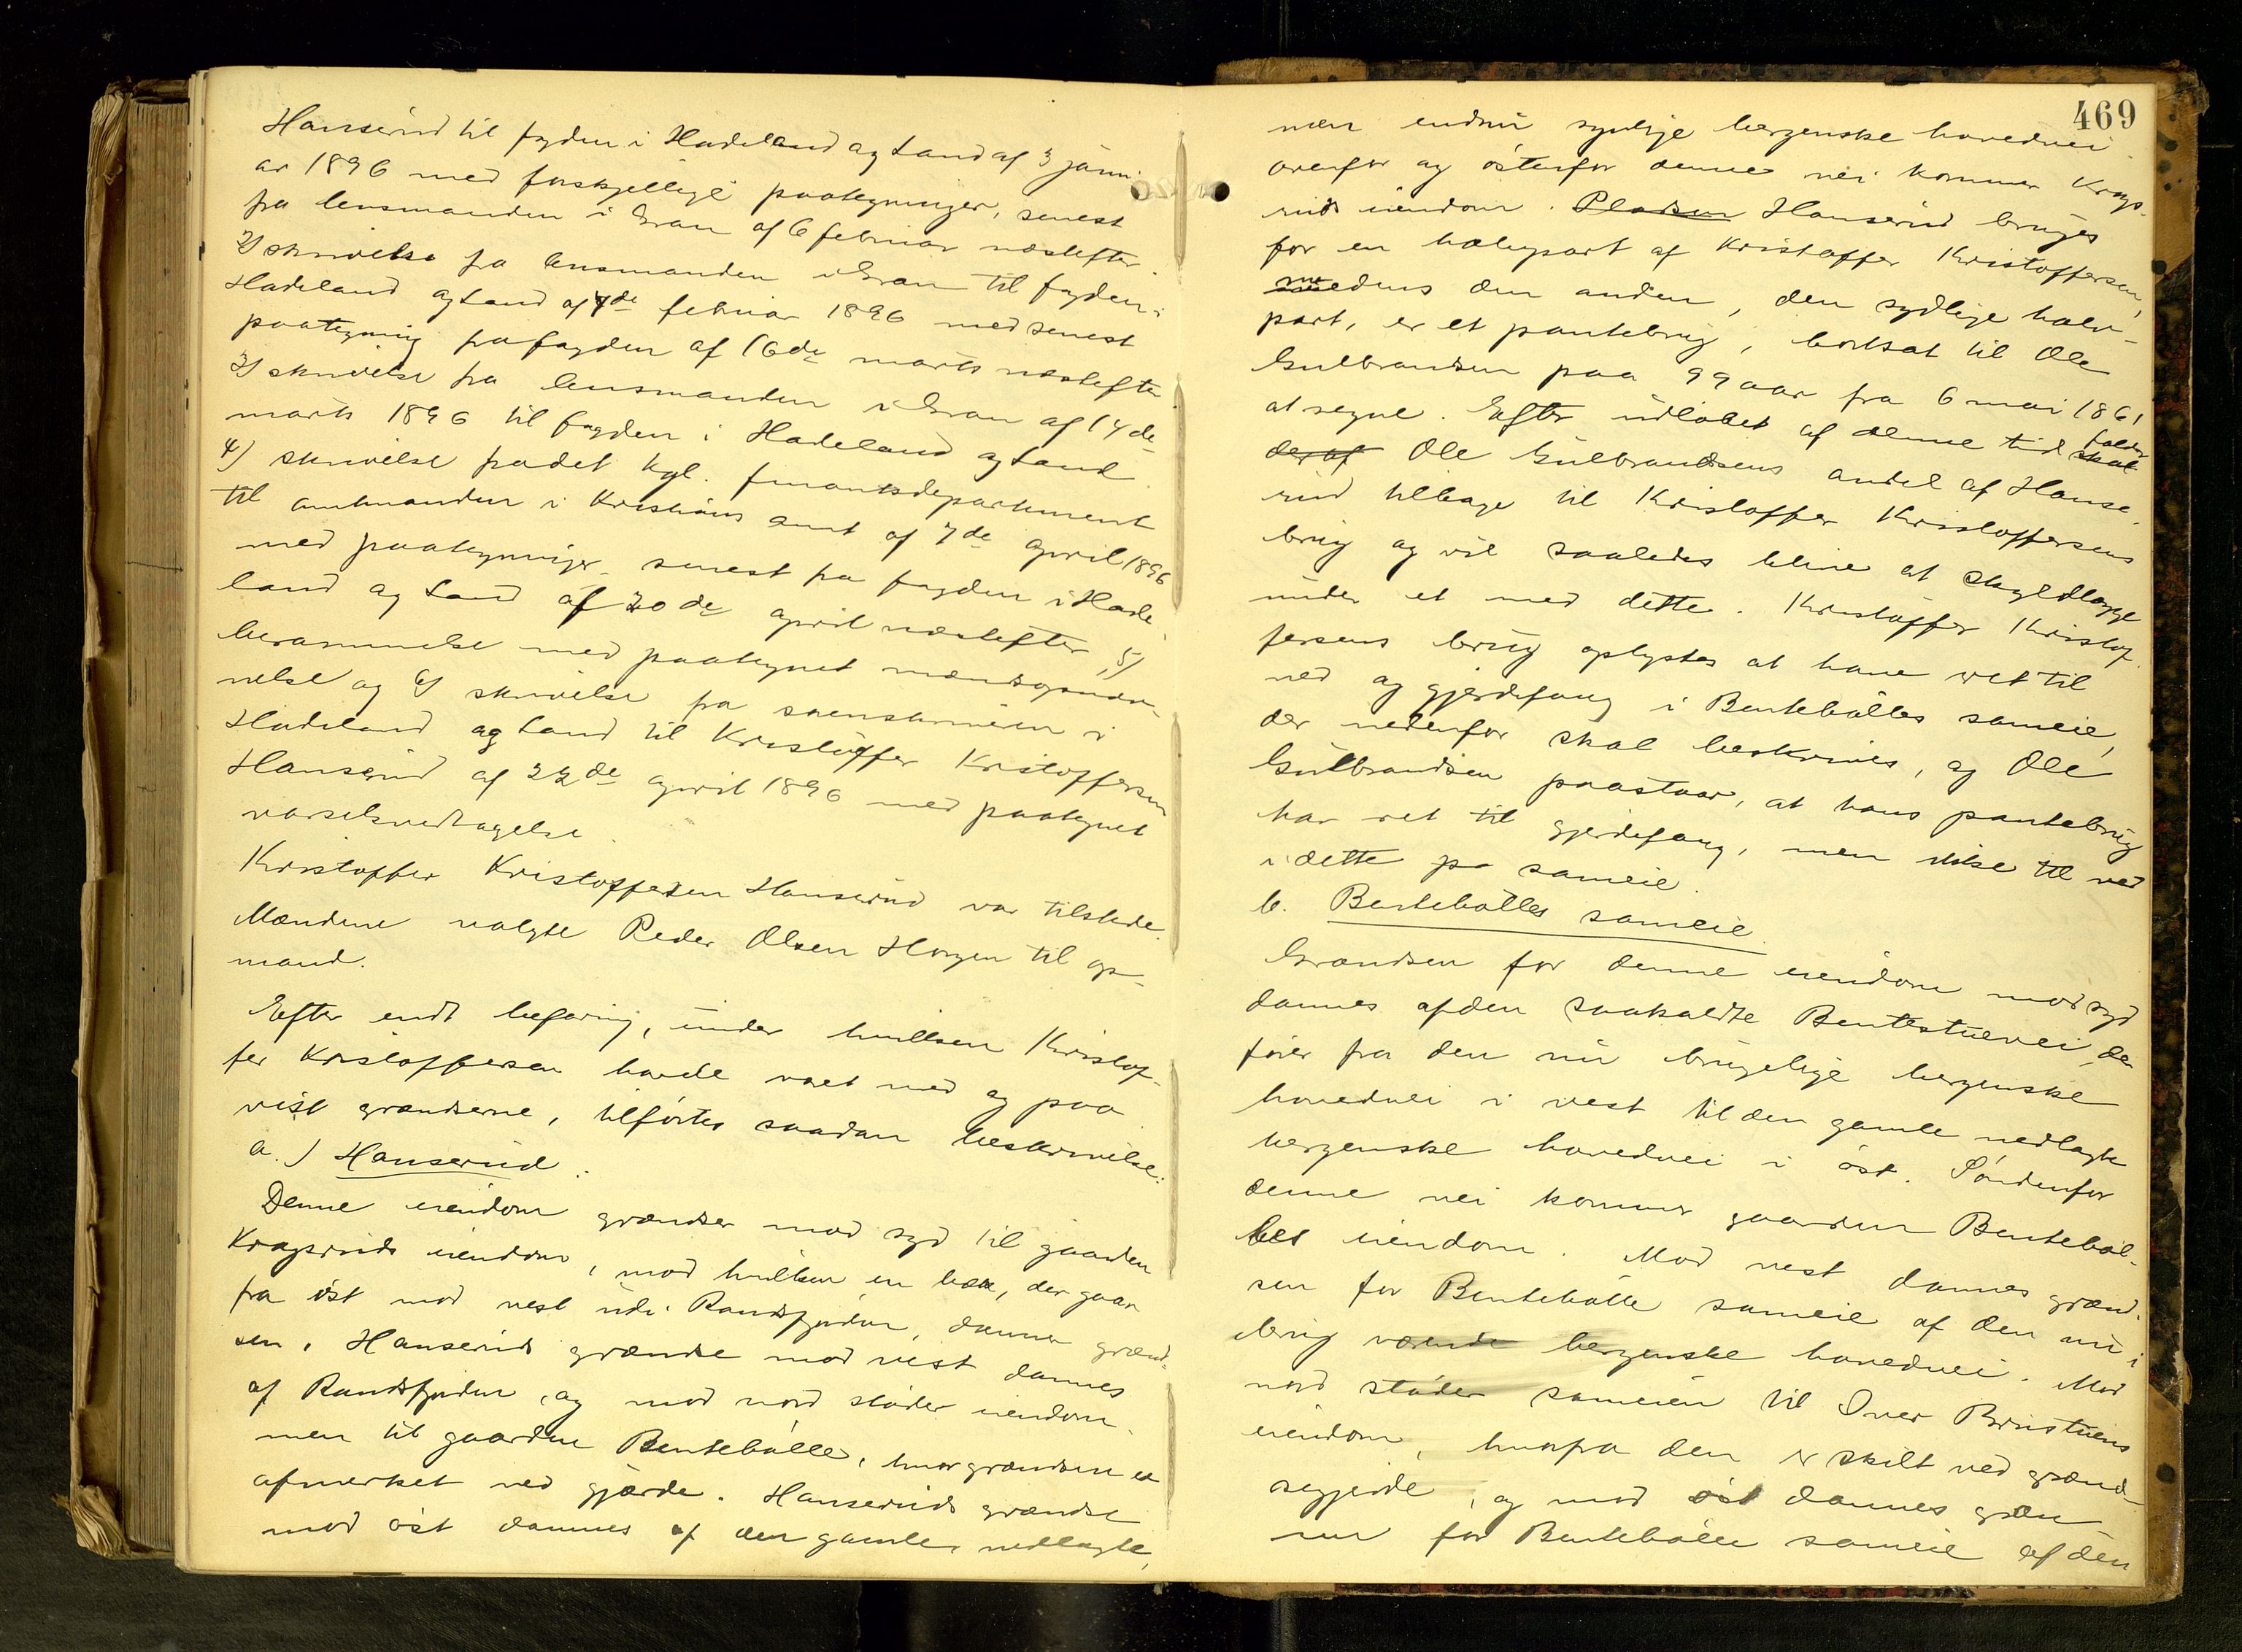 Hanserud til fogden i Hadeland og Land af 3 janu-
ar 1896 med forskjellige paategninger, senest
fra lensmanden i Gran af 6 februar næstefter
2) skrivelse fra lensmanden i Gran til fogden i
Hadeland og Land af 7de februar 1896 med senest
paategning fra fogden af 16de marts næstefter
3) skrivelse fra lensmanden i Gran af 14de
marts 1896 til fogden i Hadeland og Land
4) skrivelse fra det kgl. finantsdepartement
til amtmanden i Kristians amt af 7de april 1896
med paategninger, senest fra fogden i Hade-
land og Land af 20de april næstefter, 5)
berammelse med paategnet mændsopnæv-
nelse og 6) skrivelse fra sorenskriveren i
Hadeland og Land til Kristoffer Kristoffersen
Hanserud af 22de april 1896 med paategnet
varselsvedtagelse.
Kristoffer Kristoffersen Hanserud var tilstede.
Mændene valgte Peder Olsen Horgen til op-
mand.
Efter endt befaring, under hvilken Kristof-
fer Kristoffersen havde været med og paa
vist grændserne, tilførtes saadan beskrivelse:
a.) Hanserud.
Denne eiendom grændser mod syd til gaarden
Kragsruds eiendom, mod hvilken en bæk, der gaar
fra øst mod vest ud i Randsfjorden, danner grænd-
sen. Hanseruds grændse mod vest dannes
af Randsfjorden, og mod nord støder eiendom-
men til gaarden Bentebølle, hvor grændsen er
afmerket ved gjærde. Hanseruds grændse
mod øst dannes af den gamle, nedlagte,
469
men endnu synlige bergenske hovedvei
ovenfor og østenfor denne vei kommer Krags-
ruds eiendom. Pladsen Hanserud bruges
for en halvpart af Kristoffer Kristoffersen,
medens den anden, den sydlige halv-
part, er et pantebrug, bortsat til Ole
Gulbrandsen paa 99 aar fra 6 mai 1861
at regne. Efter udløbet af denne tid falder
skal
deraf Ole Gulbrandsens andel af Hanse-
rud tilbage til Kristoffer Kristoffersens
brug og vil saaledes blive at skyldlægge
under et med dette. Kristoffer Kristof-
fersens brug oplystes at have ret til
ved og gjerdefang i Bentebølles sameie,
der nedenfor skal beskrives, og Ole
Gulbrandsen paastaar, at hans pantebrug
har ret til gjerdefang, men ikke til ved
i dette sameie.
b. Bentebølles sameie.
Grændsen for denne eiendom mod syd
dannes af den saakaldte Bentestuevei, der
fører fra den nu brugelige bergenske
hovedvei i vest til den gamle nedlagte
bergenske hovedvei i øst. Søndenfor
denne vei kommer gaarden Bentebøl-
les eiendom. Mod vest dannes grænd-
sen for Bentebølle sameie af den nu i
brug værende bergenske hovedvei. Mod
nord støder sameien til Iver Brustuens
eiendom, hvorfra den er skilt ved grænd-
segjerde, og mod øst dannes græn
sen for Bentebølle sameie af den